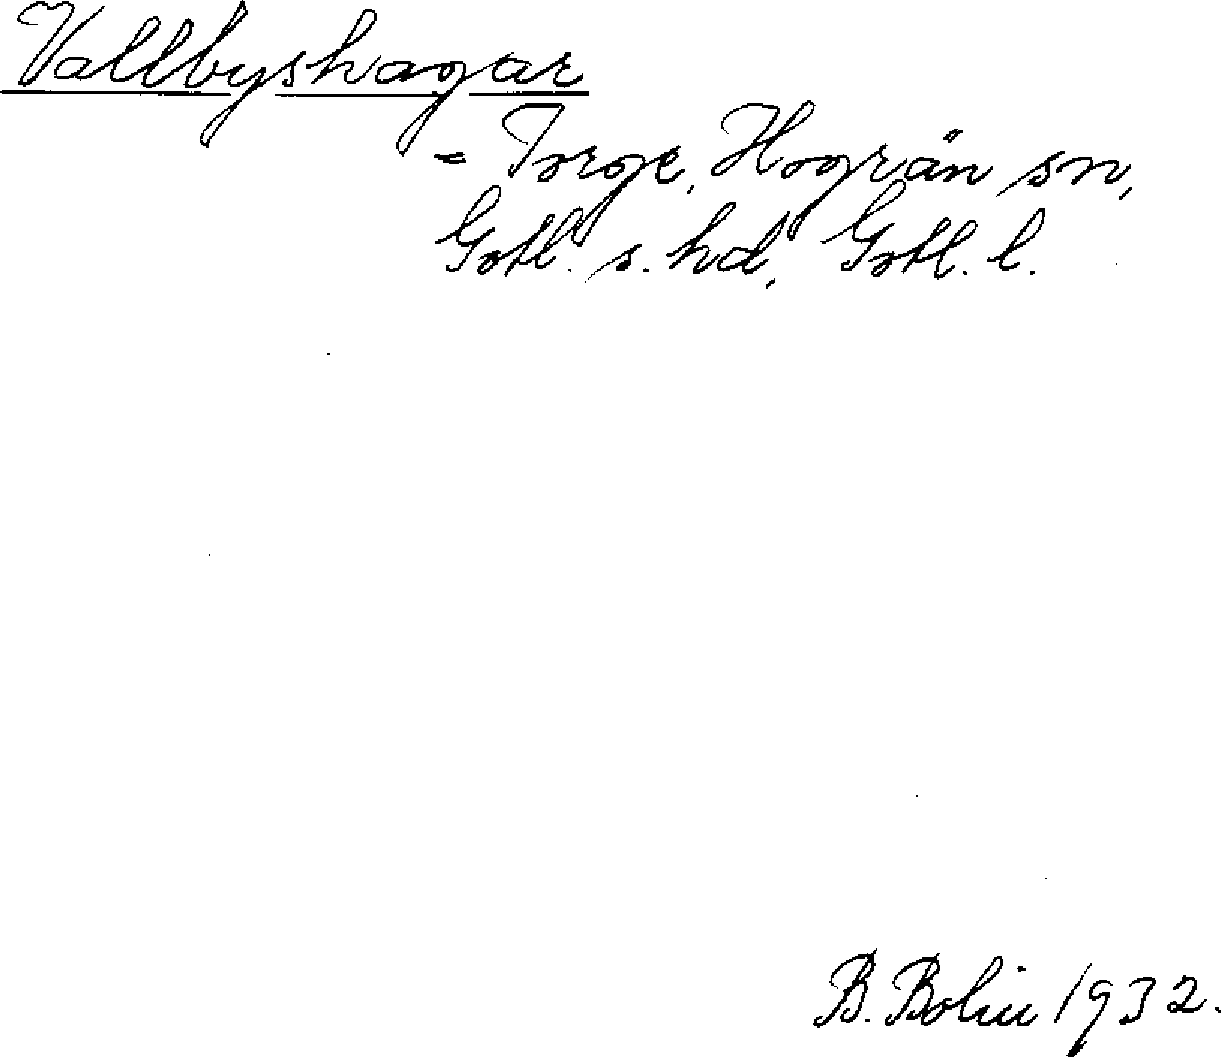 Vallbyshagar
= Torge, Hogrän sn,
Gotl. s. hd, Gotl. l.
B. Bolin 1932.